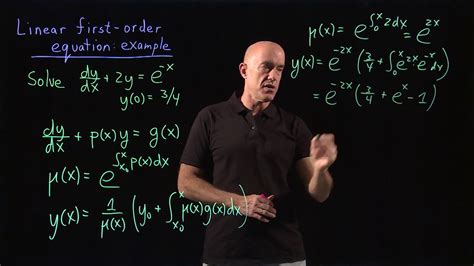 Linear first-order
equation: example
Solve dy/dx + 2y = e^{-x}
y(0) = 3/4
dy/dx + p(x)y = g(x)
μ(x) = e^{∫_{x_0}^{x} p(x)dx}
y(x) = 1/μ(x) (y_0 + ∫_{x_0}^{x} μ(x)g(x)dx)
μ(x) = e^{∫_0^x 2dx} = e^{2x}
y(x) = e^{-2x} (3/4 + ∫_0^x e^{2x} e^{-x} dx)
= e^{-2x} (3/4 + e^x - 1)